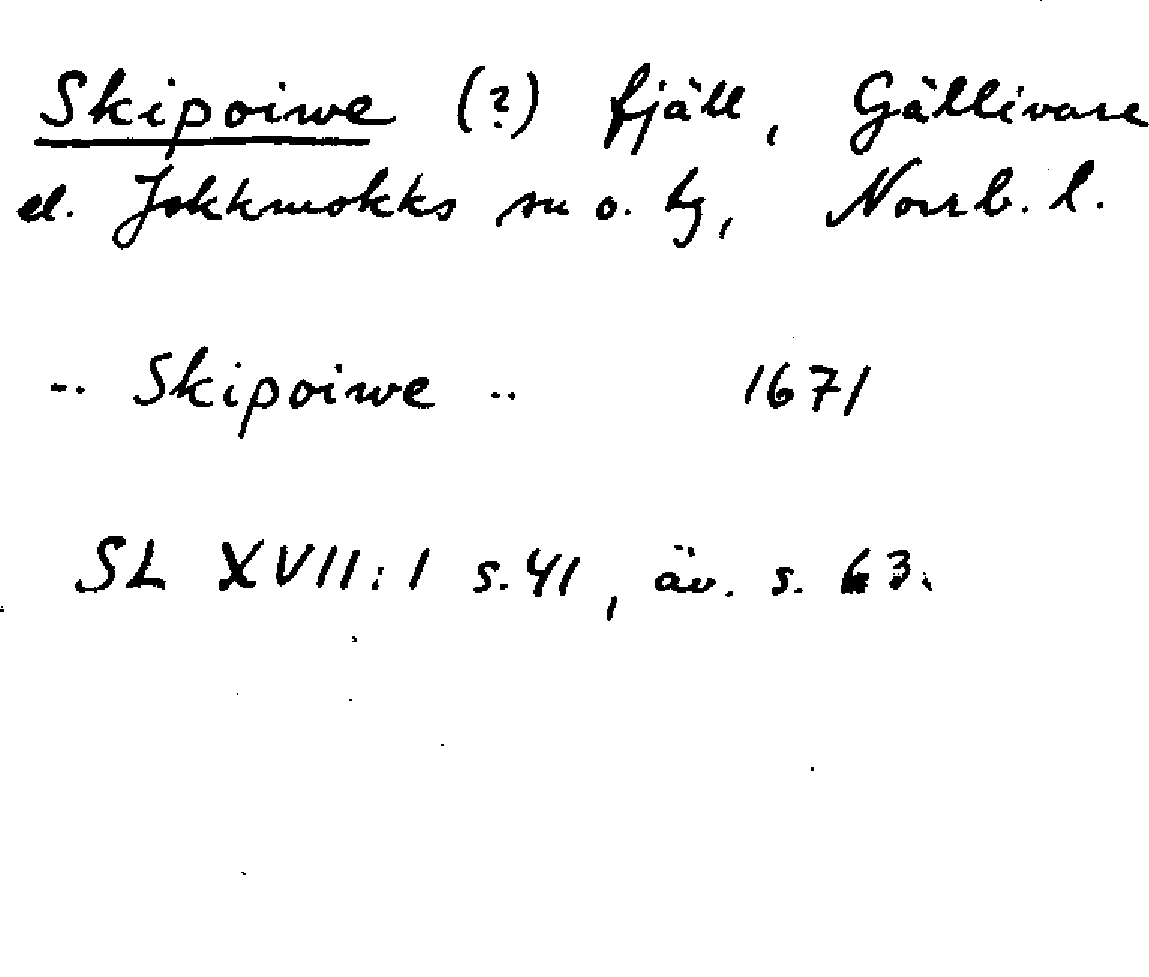 Skipoiwe (?) fjäll, Gällivare
el. Jokkmokks sn o. tg, Norrb. l.
-- Skipoiwe .. 1671
SL XVII:1 s. 41, äv. s. 63.